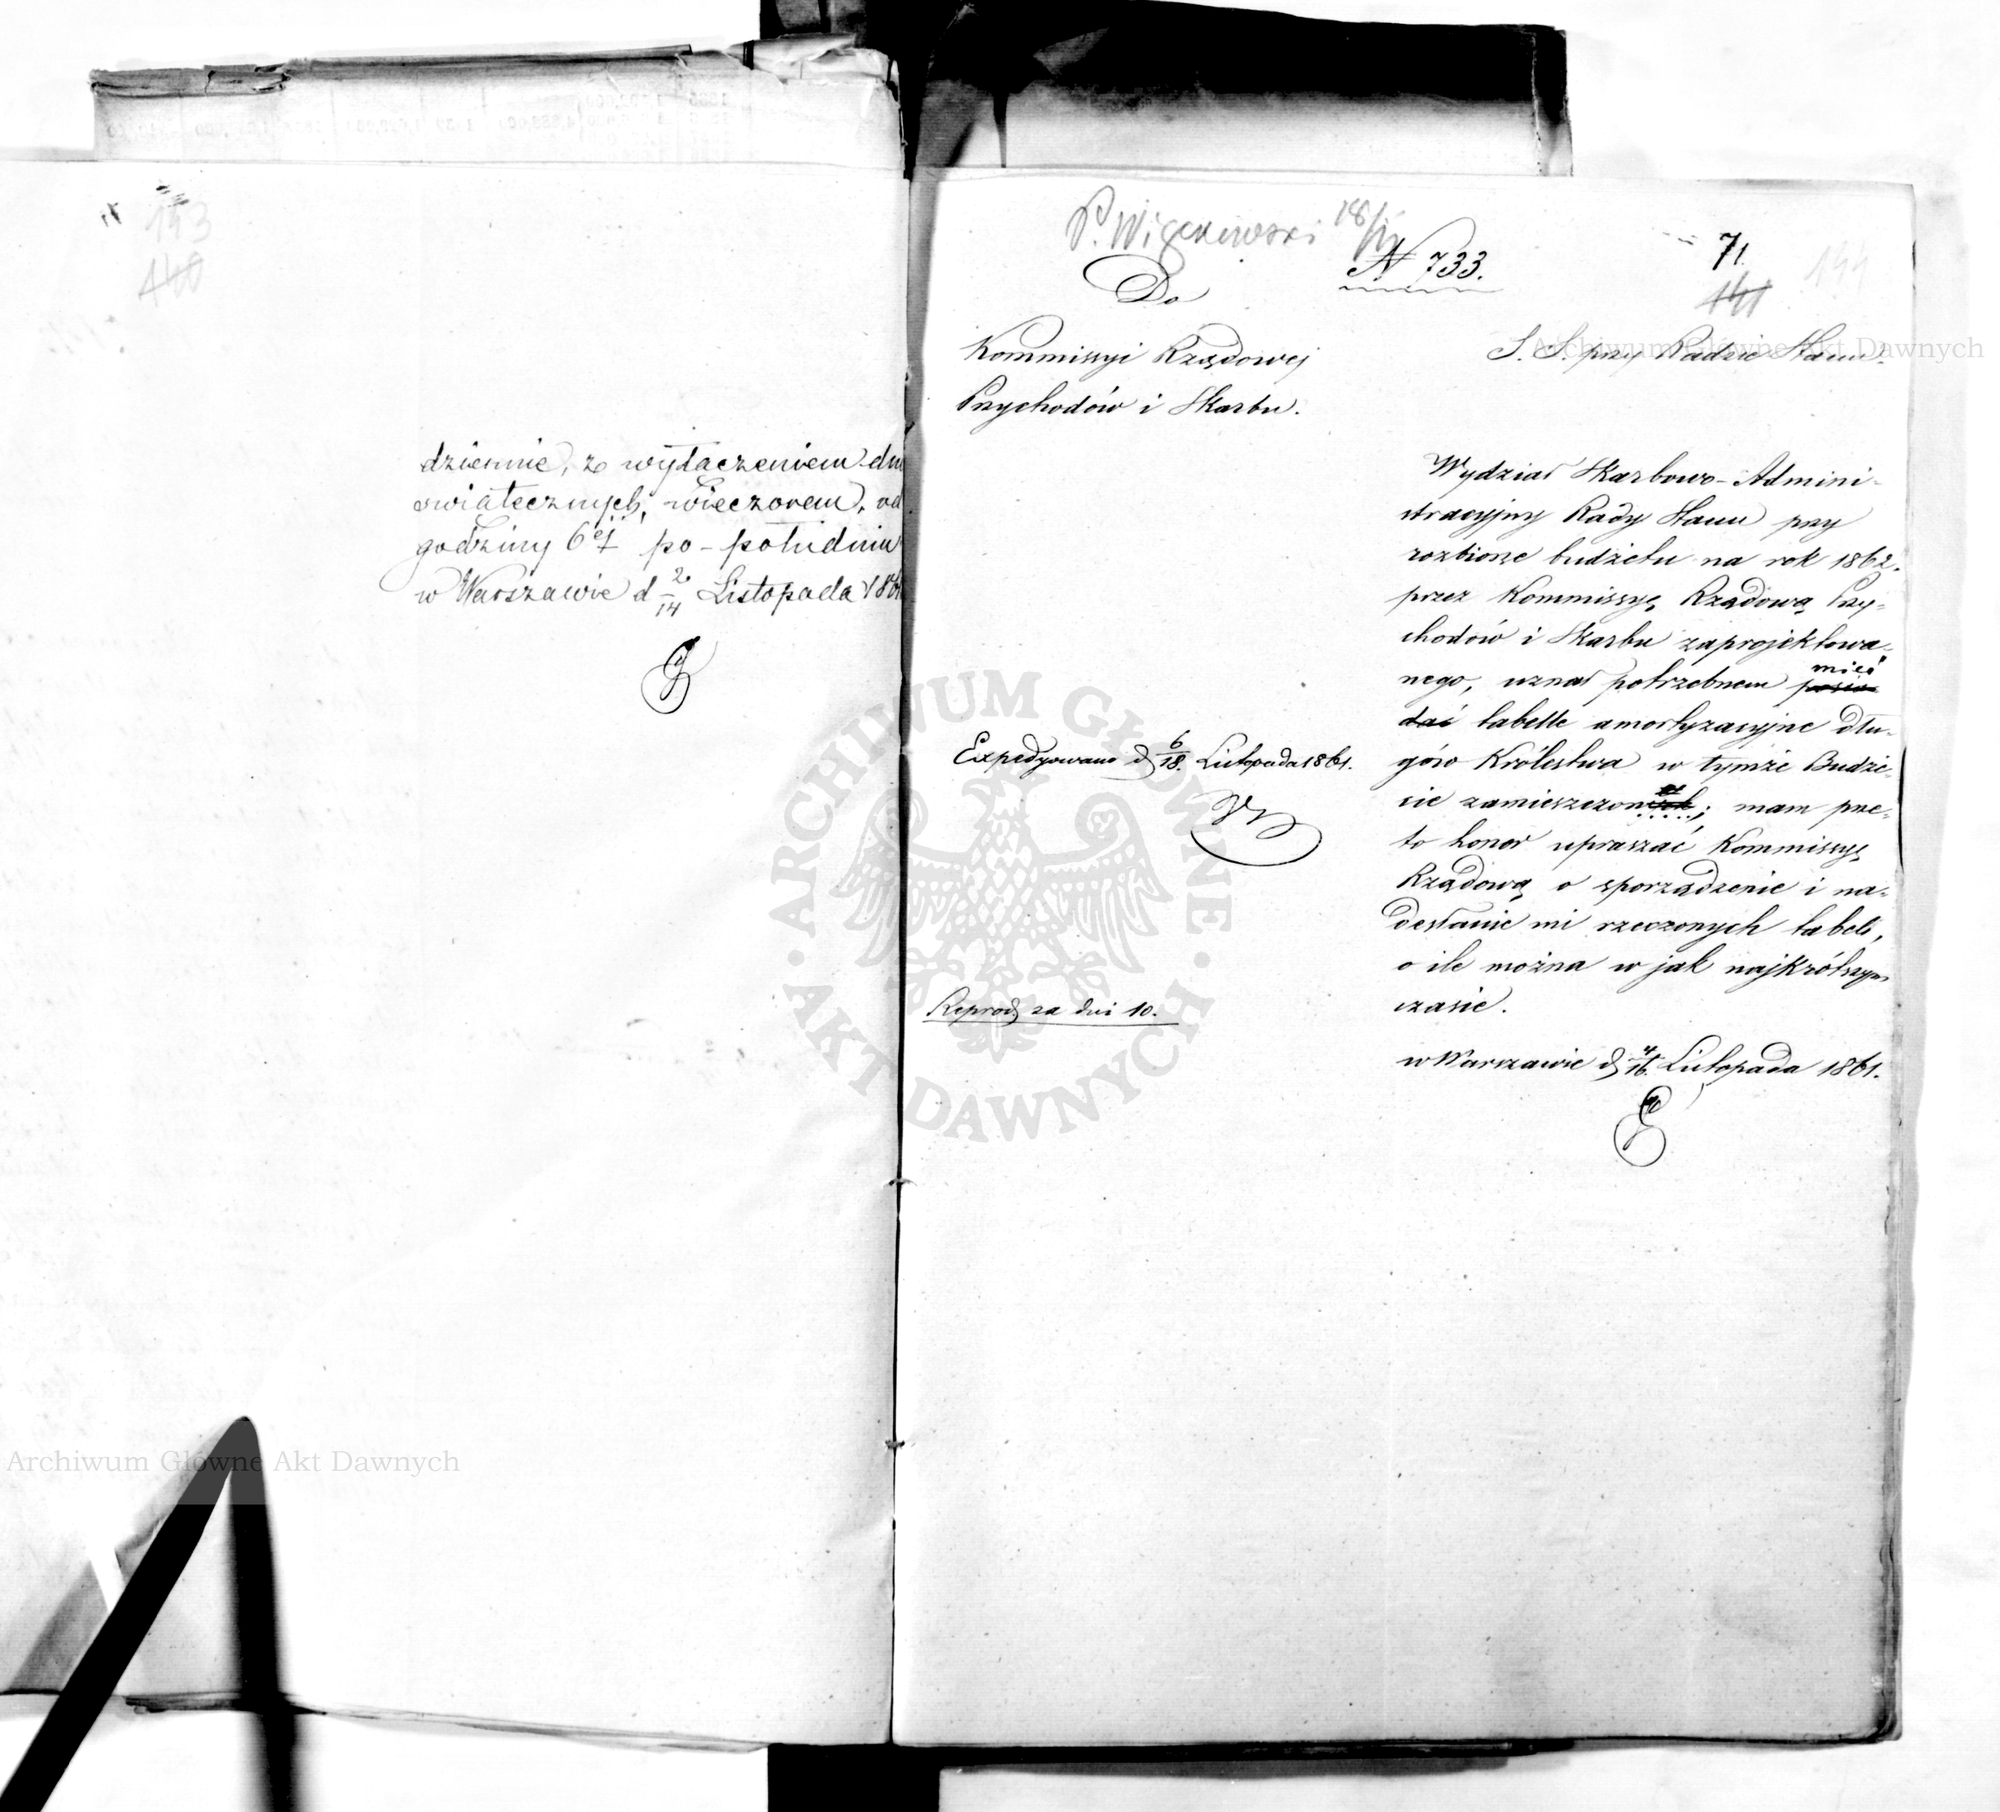 153
140
dziennie, z wyłączeniem dni
swiątecznych, wieczorem, od
godziny 6ej po-południu
w Warszawie d 2/14 Listopada 186
P. Więckowski 18/11
N 733.
71.
141
144
Do
Kommissyi Rządowej
Przychodów i Skarbu.
S. S. przy Radzie Stanu.
Wydział Skarbowo-Admini-
stracyjny Rady Stanu przy
rozbiorze budżetu na rok 1862.
przez Kommissyę Rządową Przy-
chodów i Skarbu zaprojektowa-
nego, uznał potrzebnem posia- mieć
dać tabelle amortyzacyjne dłu-
gów Królestwa w tymże Budże-
cie zamieszczonych; mam prze-
to honor upraszać Kommissyę
Rządową o sporządzenie i na-
desłanie mi rzeczonych tabell,
o ile można w jak najkrótszym
czasie.
w Warszawie d 4/16. Listopada 1861.
Expedyowano d 6/18. Listopada 1861.
Reprod. za dni 10.
ARCHIWUM GŁÓWNE AKT DAWNYCH
Archiwum Główne Akt Dawnych
Archiwum Główne Akt Dawnych